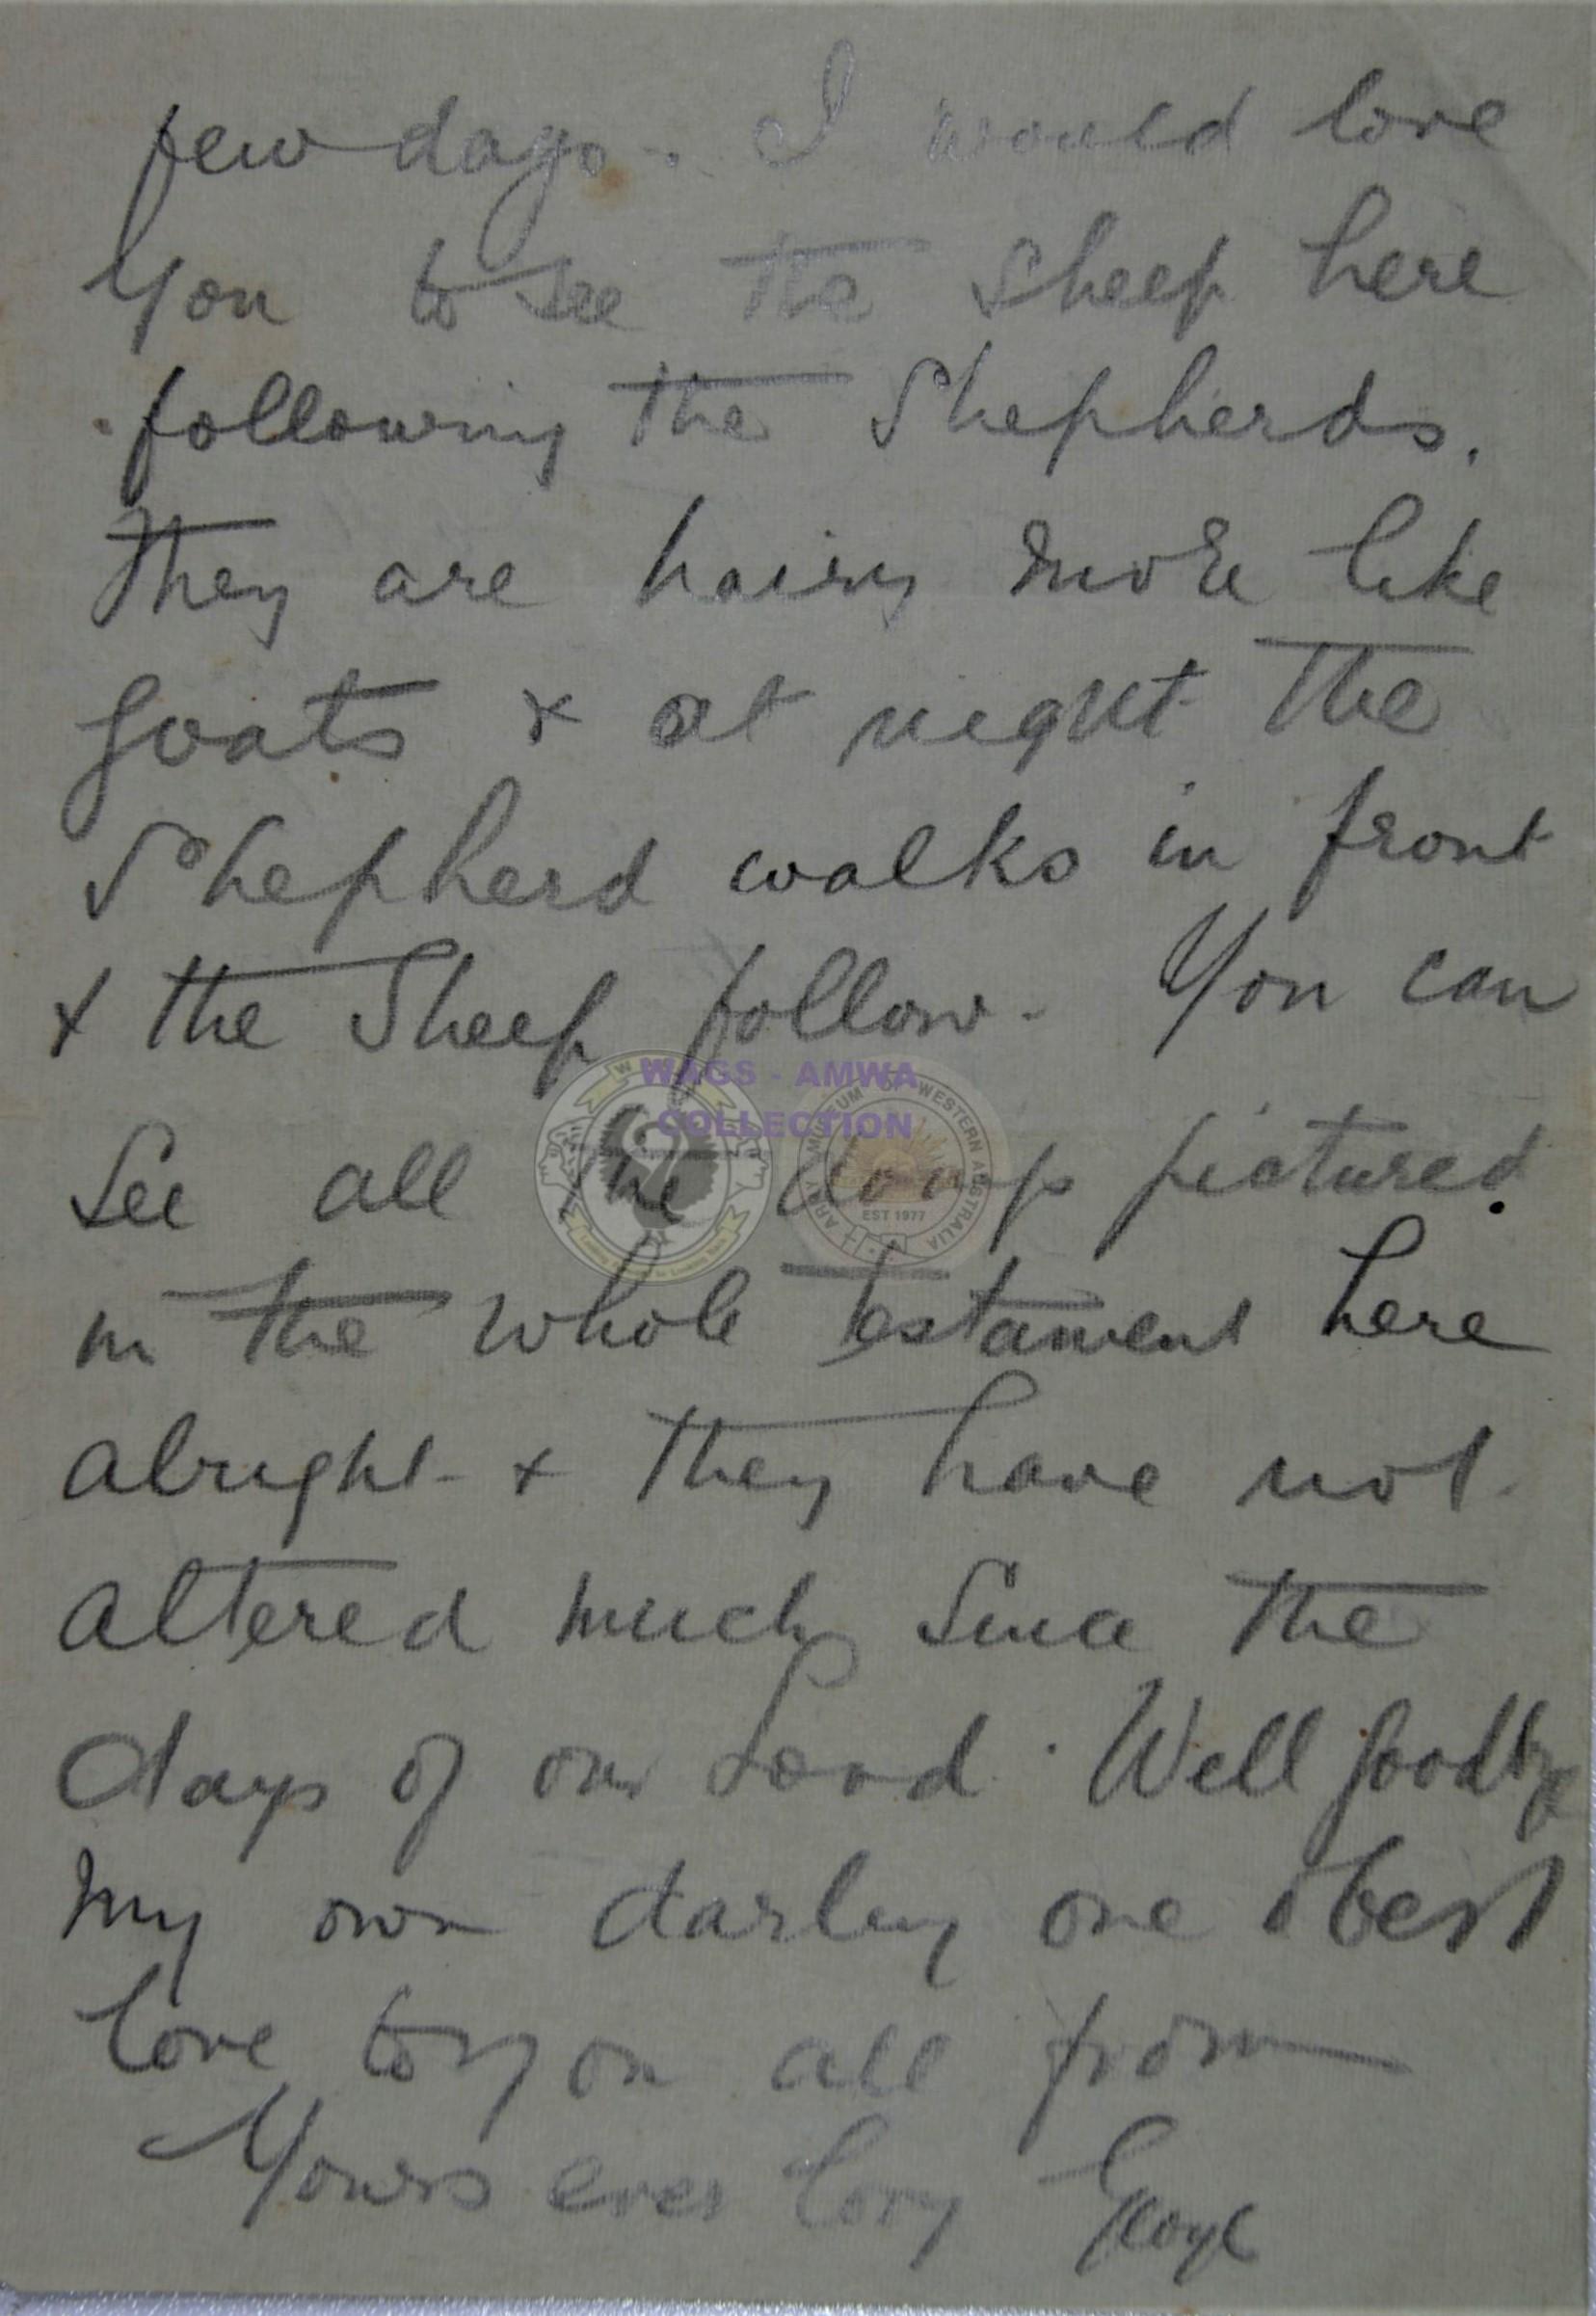 few days. I would love
You to see the Sheep here
following the Shepherds.
They are hairy more like
goats & at night the
Shepherd walks in front
& the Sheep follow. You can
WAGS - AMWA
COLLECTION
See all the pictured
EST 1977
in the whole testament here
alright & they have not
altered much since the
days of our Lord. Well goodbye
my own darling one & best
love to you all from
Yours ever